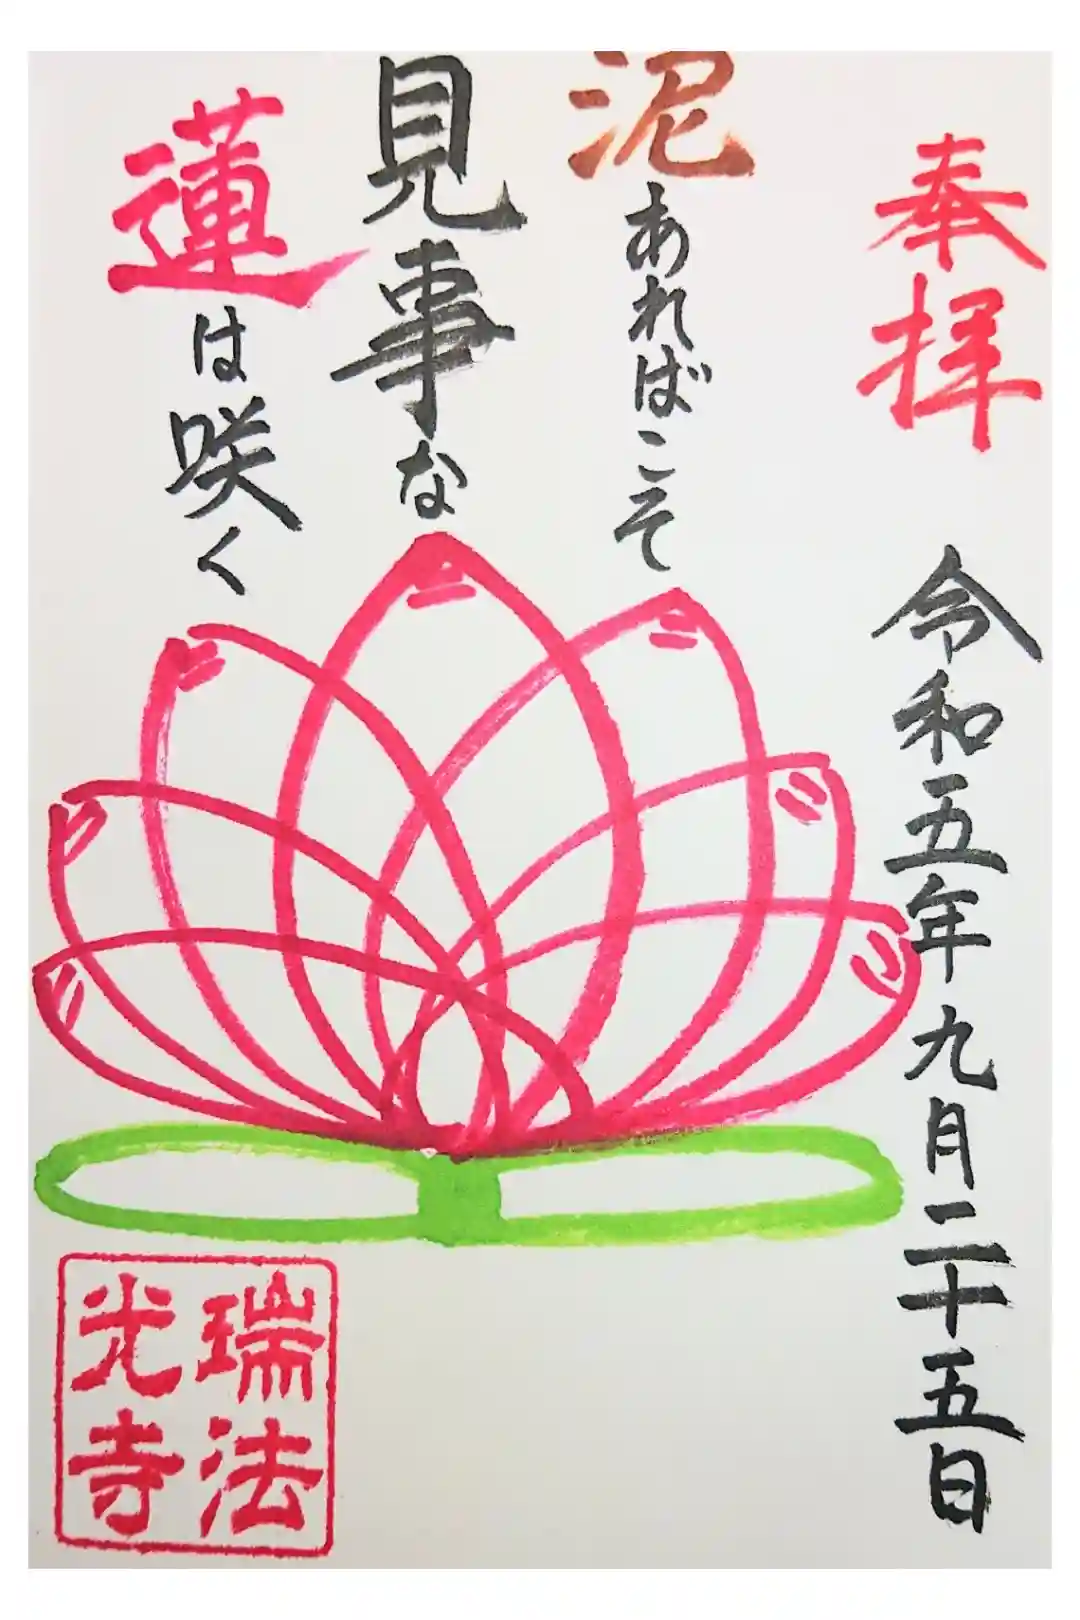 奉拝
令和五年九月二十五日
泥あればこそ
見事な
蓮は咲く
瑞法
光寺